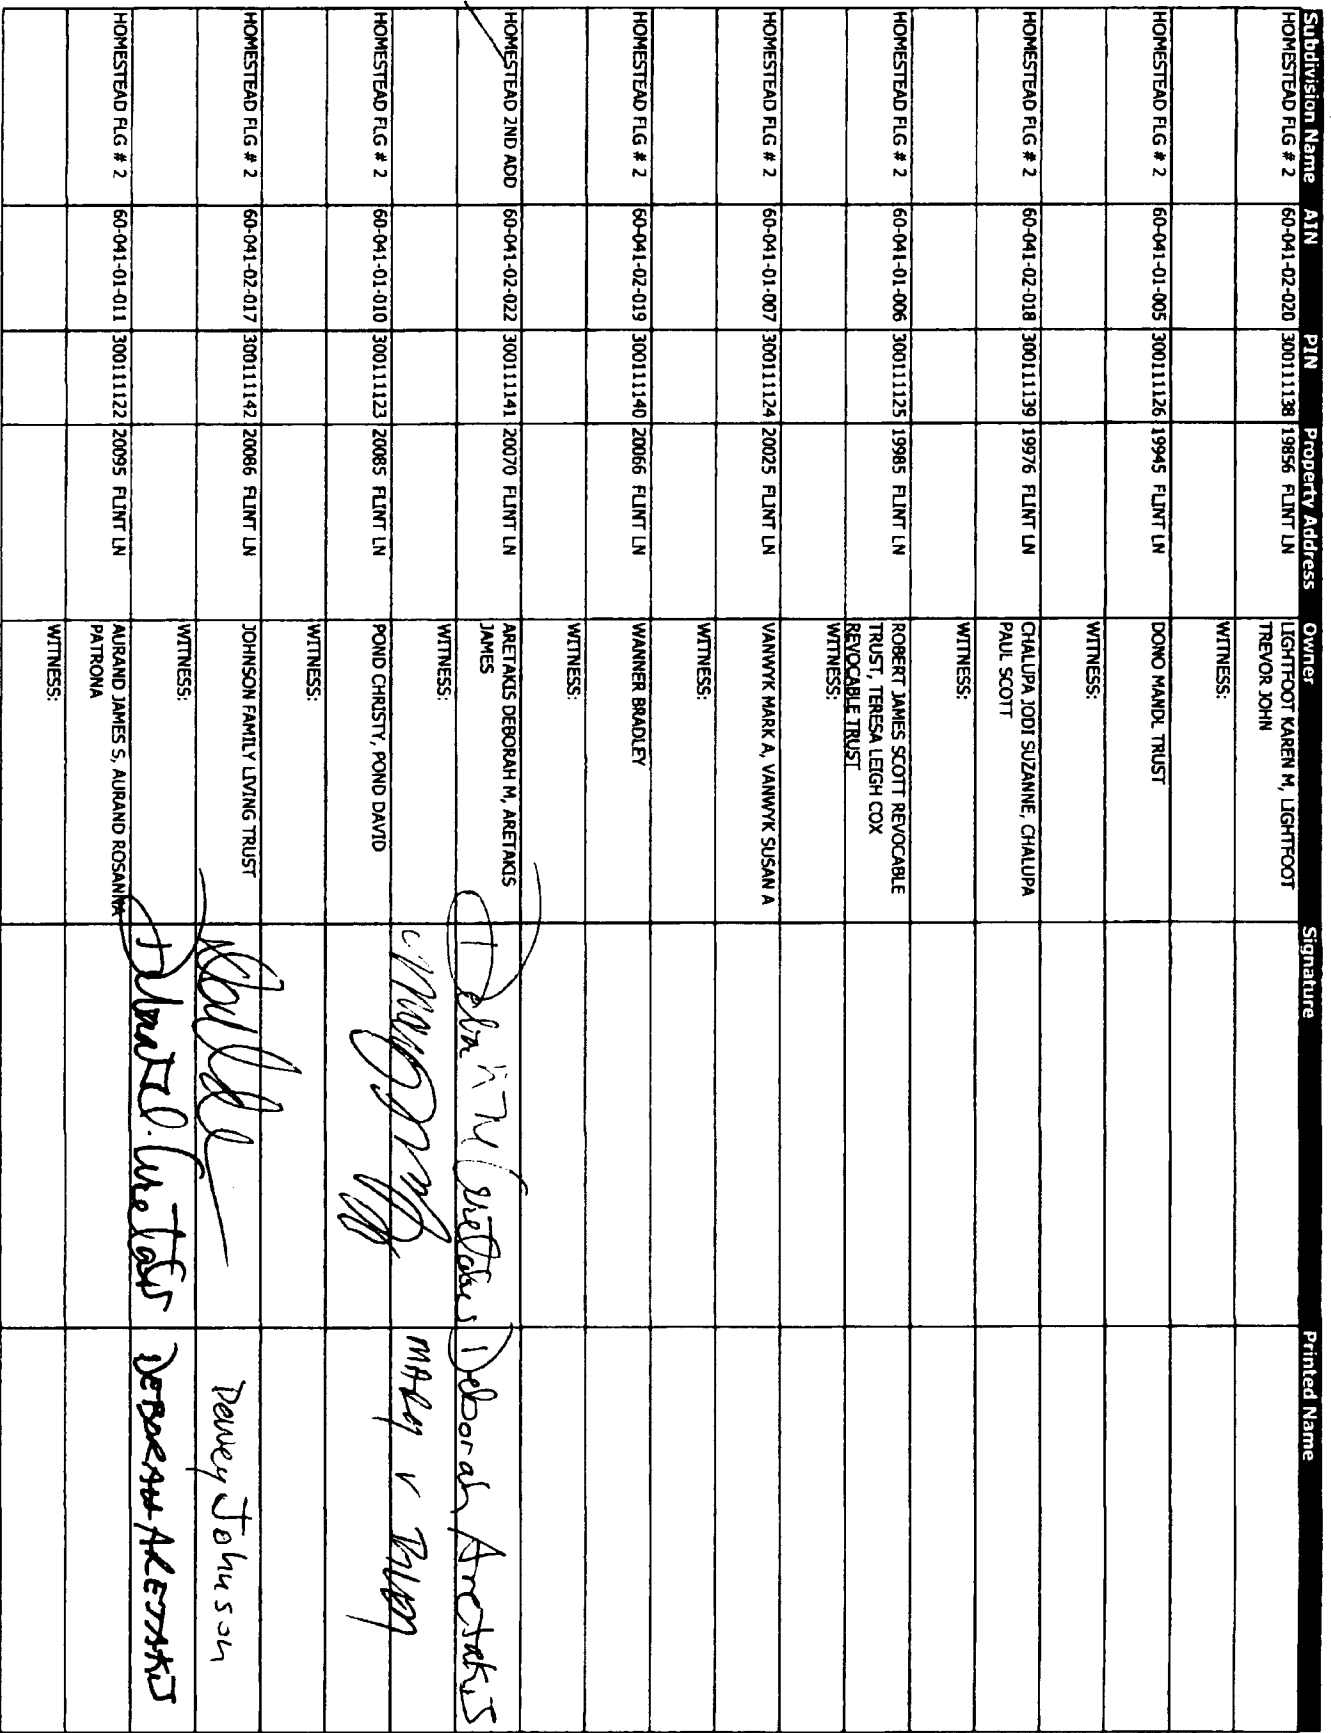 Subdivision Name AIN PIN Property Address Owner Signature Printed Name
HOMESTEAD FLG # 2 60-041-02-020 300111138 19856 FLINT LN LIGHTFOOT KAREN M, LIGHTFOOT
TREVOR JOHN
WITNESS:
HOMESTEAD FLG # 2 60-041-01-005 300111126 19945 FLINT LN DONO MANDL TRUST
WITNESS:
HOMESTEAD FLG # 2 60-041-02-018 300111139 19976 FLINT LN CHALUPA JODI SUZANNE, CHALUPA
PAUL SCOTT
WITNESS:
HOMESTEAD FLG # 2 60-041-01-006 300111125 19985 FLINT LN ROBERT JAMES SCOTT REVOCABLE
TRUST, TERESA LEIGH COX
REVOCABLE TRUST
WITNESS:
HOMESTEAD FLG # 2 60-041-01-007 300111124 20025 FLINT LN VANWYK MARK A, VANWYK SUSAN A
WITNESS:
HOMESTEAD FLG # 2 60-041-02-019 300111140 20066 FLINT LN WANNER BRADLEY
WITNESS:
HOMESTEAD 2ND ADD 60-041-02-022 300111141 20070 FLINT LN ARETAKIS DEBORAH M, ARETAKIS Deborah Aretakis
JAMES
WITNESS: MARY V
HOMESTEAD FLG # 2 60-041-01-010 300111123 20085 FLINT LN POND CHRISTY, POND DAVID
WITNESS:
HOMESTEAD FLG # 2 60-041-02-017 300111142 20086 FLINT LN JOHNSON FAMILY LIVING TRUST Dewey Johnson
WITNESS: DEBORAH ARETAKIS
HOMESTEAD FLG # 2 60-041-01-011 300111122 20095 FLINT LN AURAND JAMES S, AURAND ROSANNA
PATRONA
WITNESS: